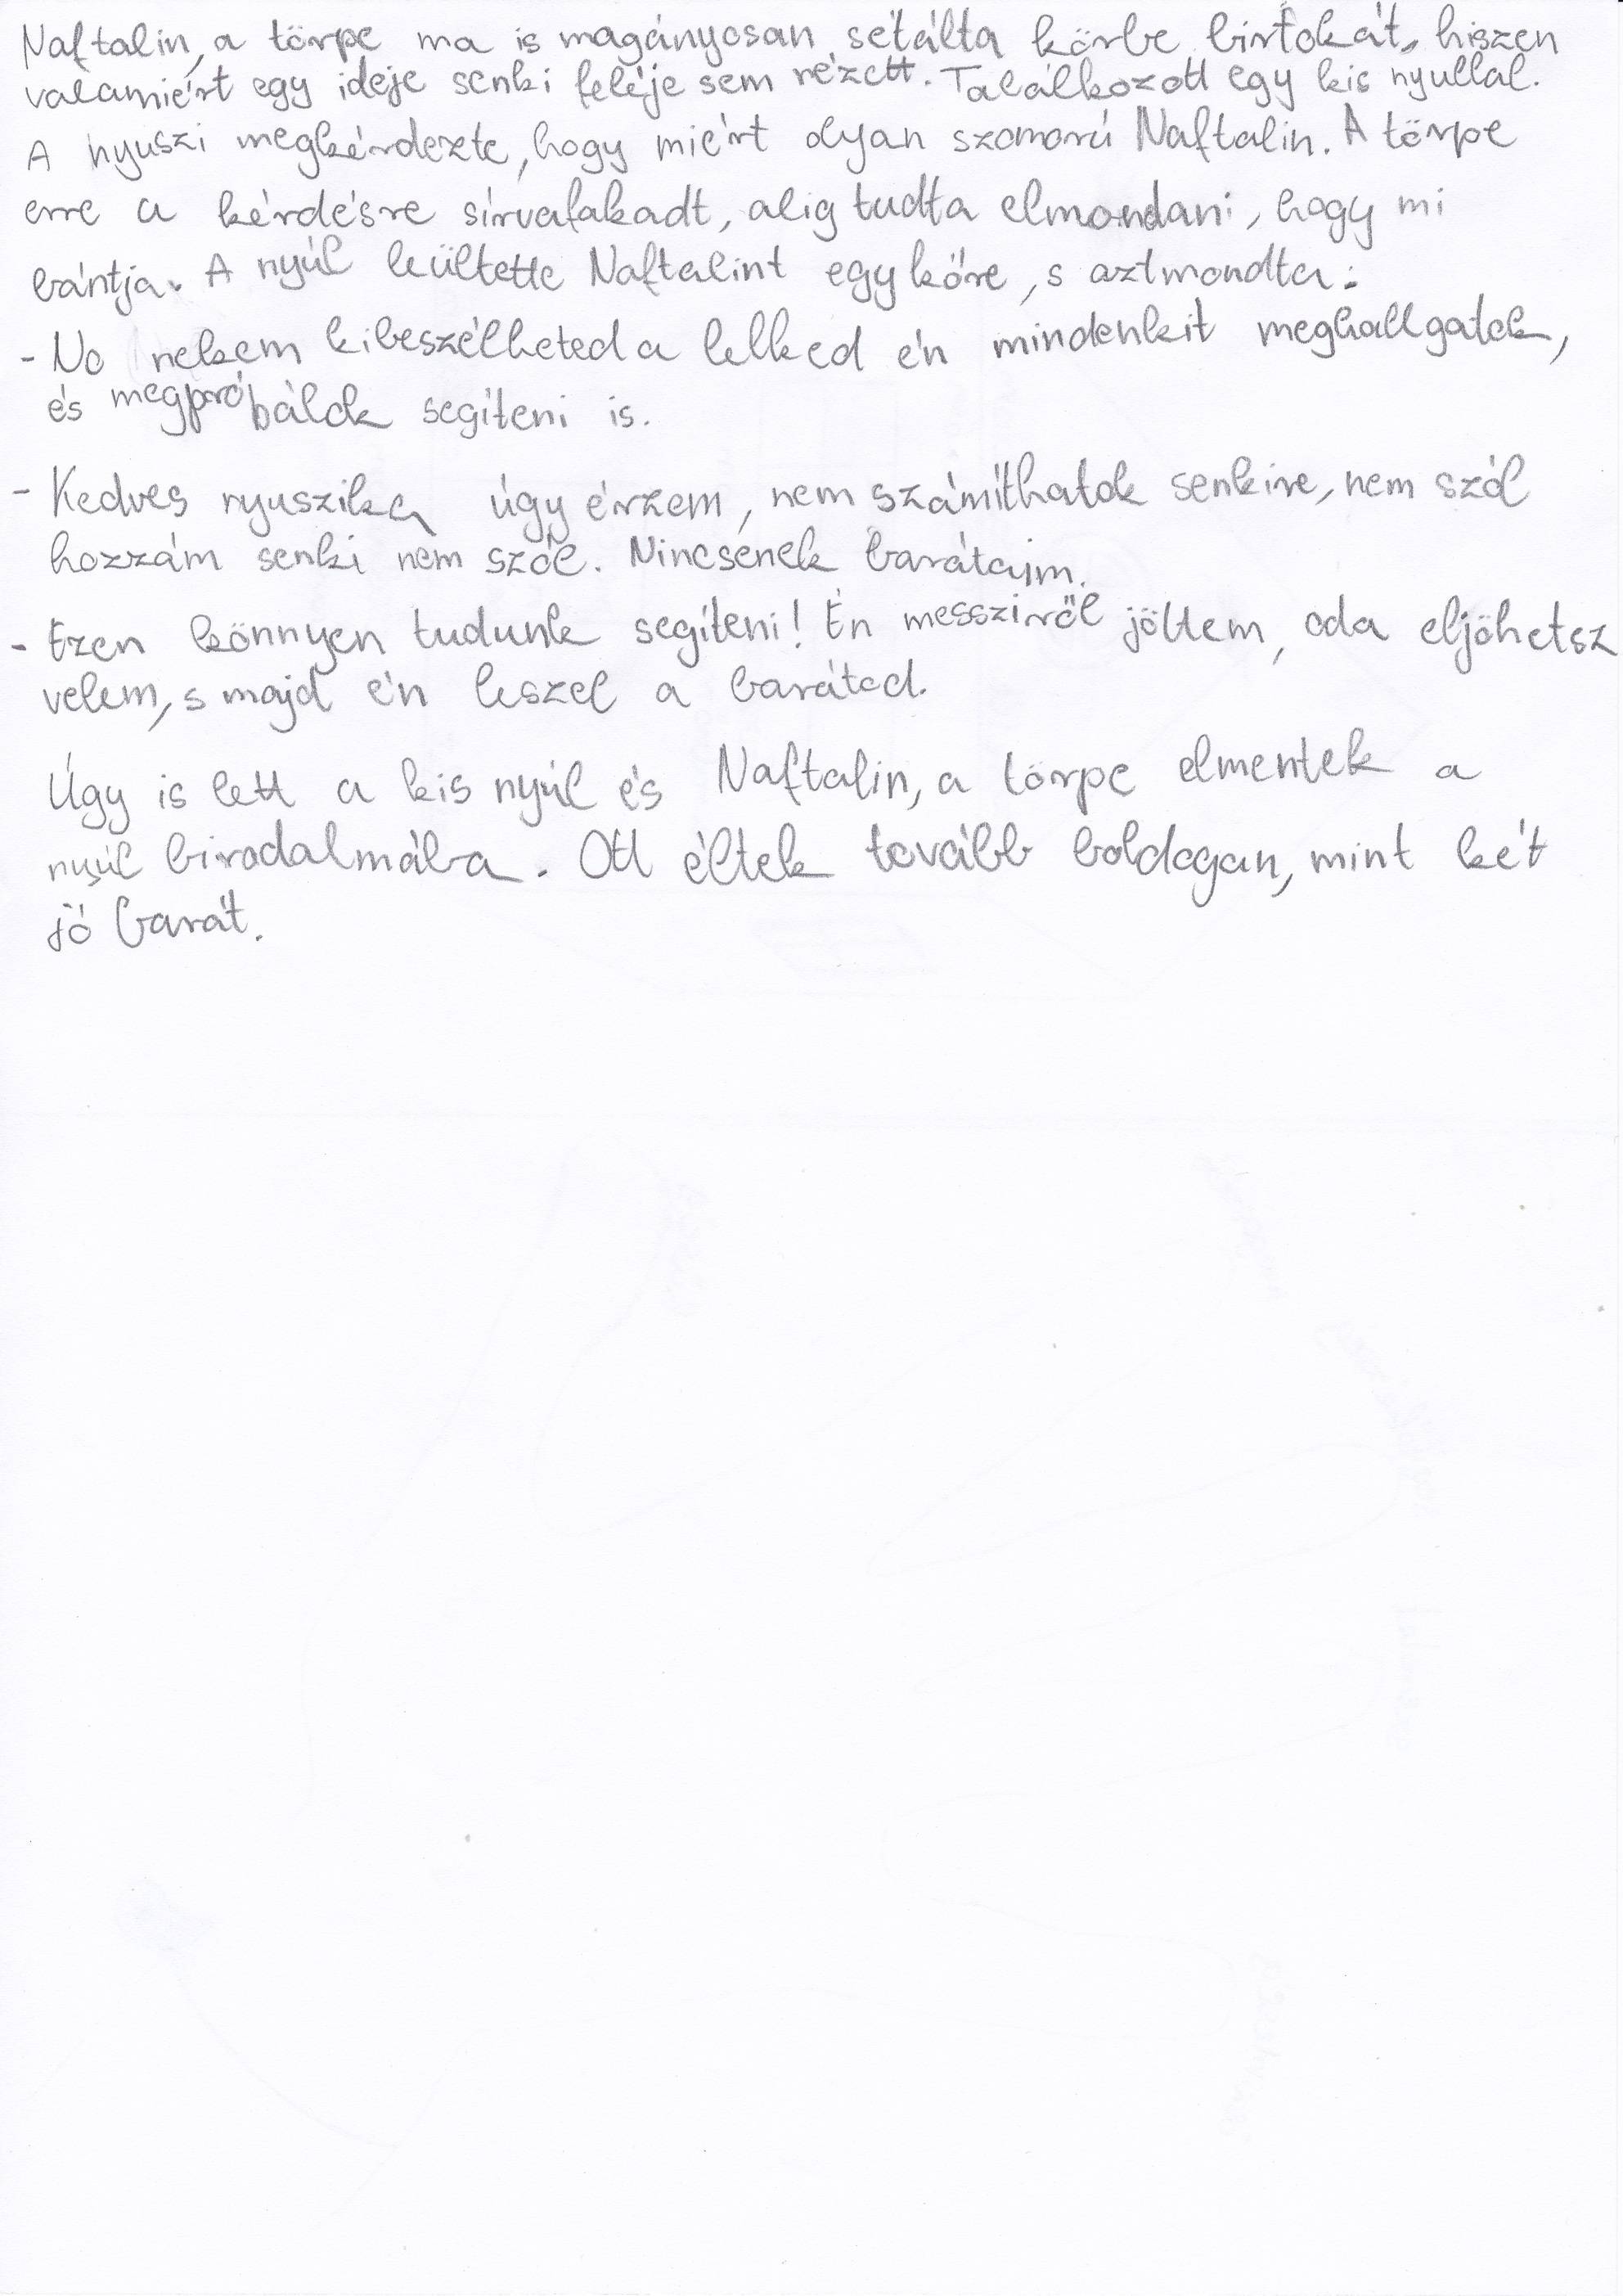 Naftalin, a törpe ma is magányosan sétálta körbe birtokát, hiszen
valamiért egy ideje senki feléje sem nézett. Találkozott egy kis nyullal.
A nyuszi megkérdezte, hogy miért olyan szomorú Naftalin. A törpe
erre a kérdésre sírvafakadt, alig tudta elmondani, hogy mi
bántja. A nyúl leültette Naftalint egy kőre, s aztmondta:
- No nekem kibeszélheted a lelked én mindenkit meghallgatok,
és megpróbálok segíteni is.
- Kedves nyuszika úgy érzem, nem számíthatok senkire, nem szól
hozzám senki nem szól. Nincsenek barátaim.
- Ezen könnyen tudunk segíteni! Én messziről jöttem, oda eljöhetsz
velem, s majd én leszel a barátod.
Úgy is lett a kis nyúl és Naftalin, a törpe elmentek a
nyúl birodalmába. Ott éltek tovább boldogan, mint két
jó barát.